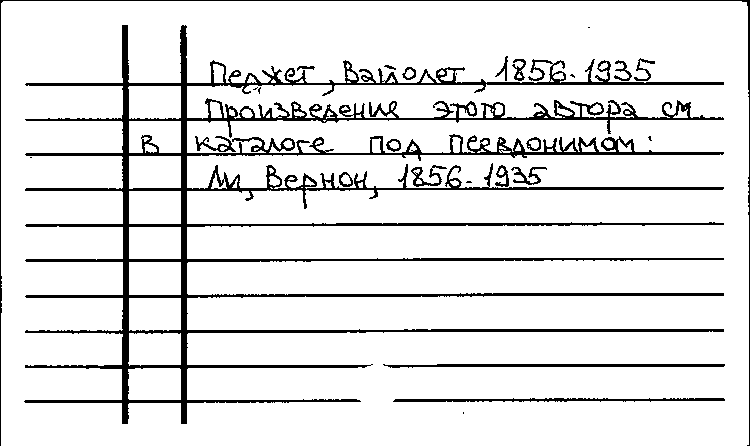 Педжет, Вайолет, 1856-1935
Произведение этого автора см.
в каталоге под псевдонимом:
Ли, Вернон, 1856-1935